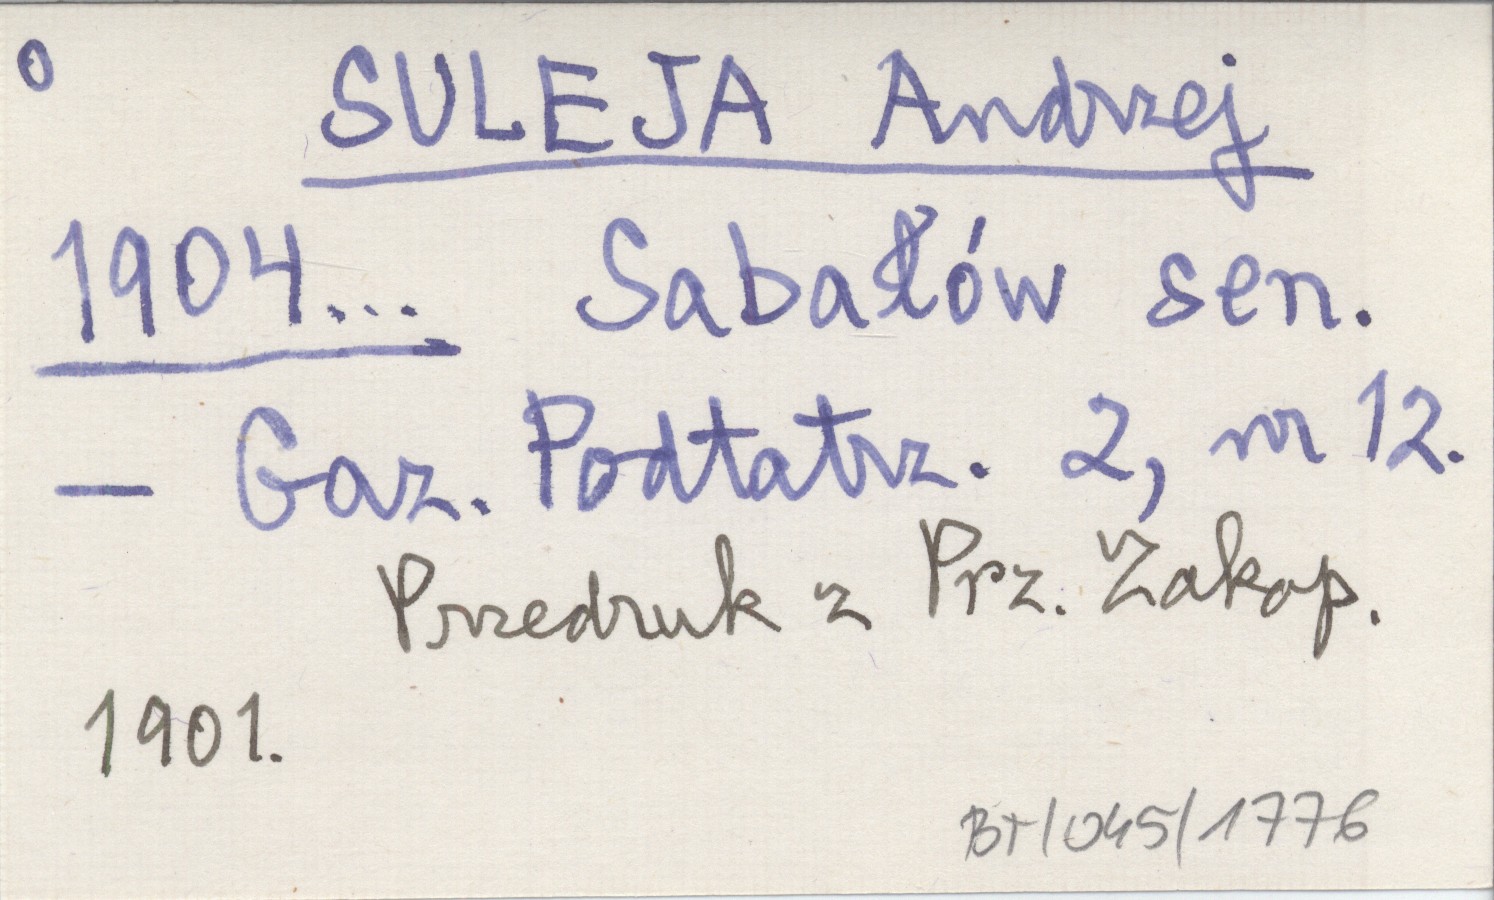 o SULEJA Andrzej
1904... Sabałów sen.
— Gaz. Podtatrz. 2, nr 12.
Przedruk z Prz. Zakop.
1901.
BT/045/1776